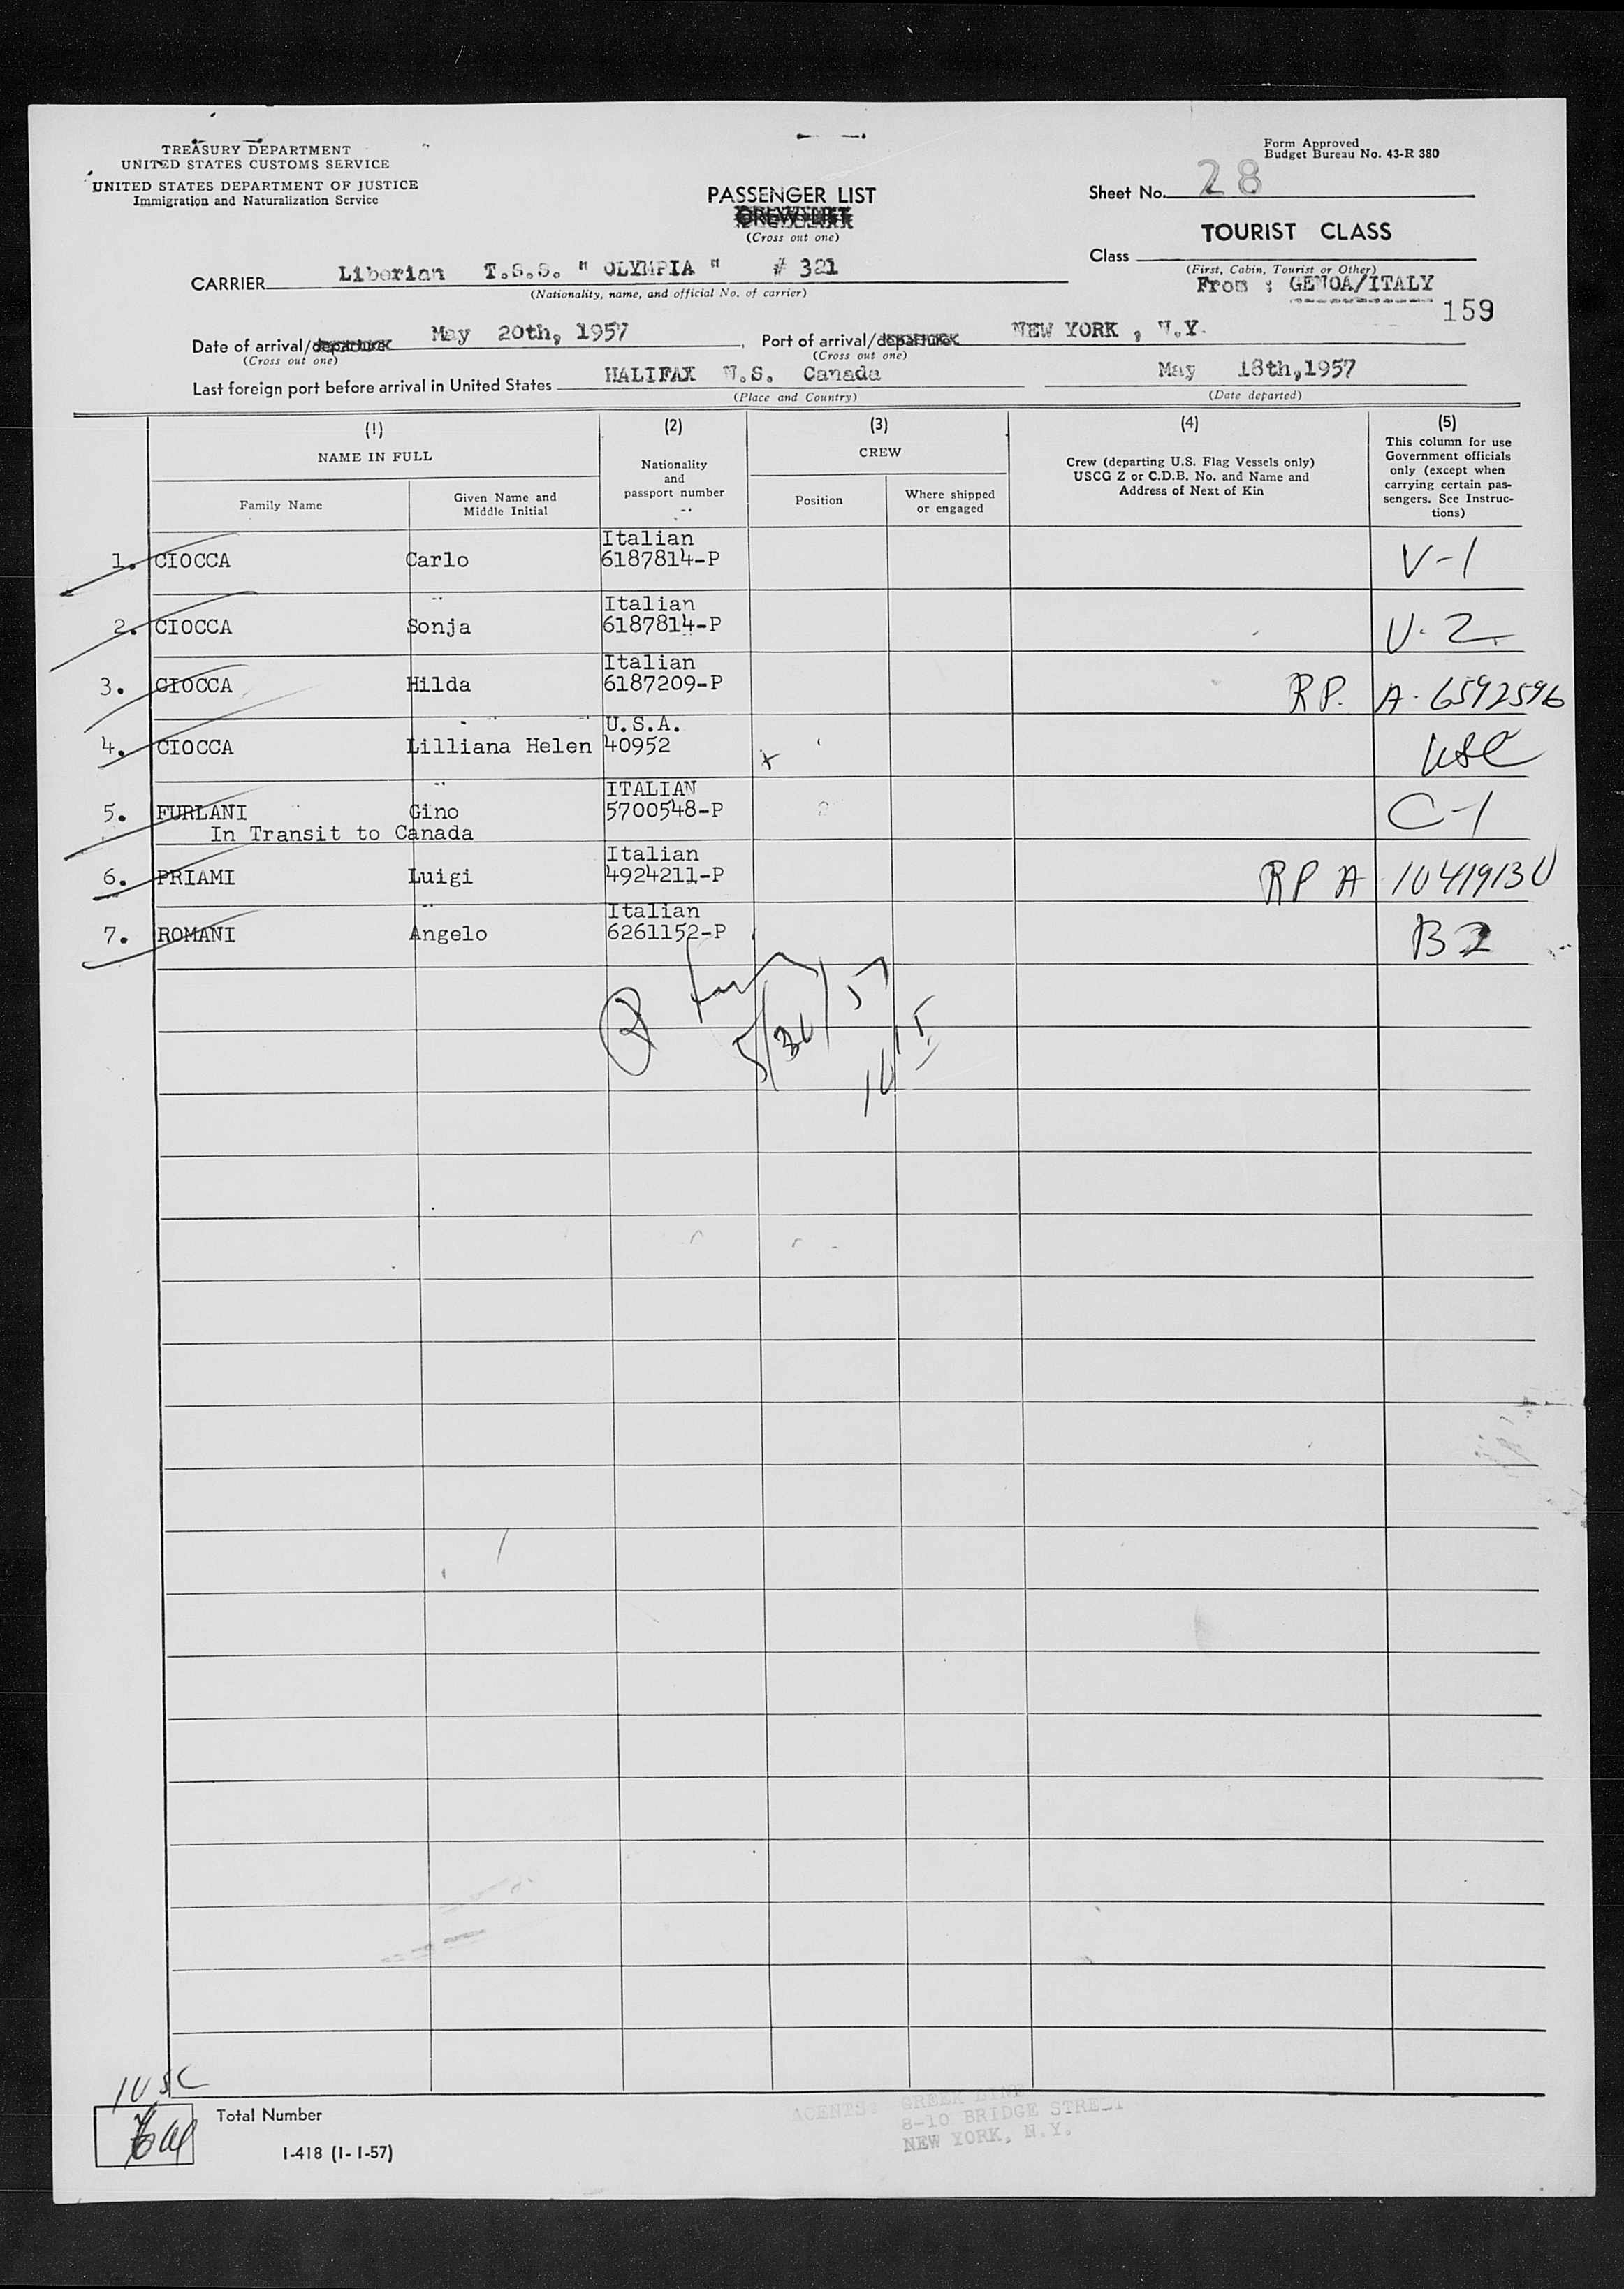 TREASURY DEPARTMENT
UNITED STATES CUSTOMS SERVICE
UNITED STATES DEPARTMENT OF JUSTICE
Immigration and Naturalization Service
Form Approved
Budget Bureau No. 43-R 380
PASSENGER LIST
CREW LIST
(Cross out one)
Sheet No. 28
TOURIST CLASS
Class
(First, Cabin, Tourist or Other)
From : GENOA/ITALY
159
CARRIER Liberian T.S.S. " OLYMPIA " # 321
(Nationality, name, and official No. of carrier)
Date of arrival/departure May 20th, 1957 Port of arrival/departure NEW YORK , N.Y.
(Cross out one) (Cross out one)
Last foreign port before arrival in United States HALIFAX N.S. Canada May 18th,1957
(Place and Country) (Date departed)
(1) (2) (3) (4) (5)
NAME IN FULL
Family Name
Given Name and
Middle Initial
Nationality
and
passport number
CREW
Position
Where shipped
or engaged
Crew (departing U.S. Flag Vessels only)
USCG Z or C.D.B. No. and Name and
Address of Next of Kin
This column for use
Government officials
only (except when
carrying certain pas-
sengers. See Instruc-
tions)
Italian
1. CIOCCA Carlo 6187814-P V-1
Italian
2. CIOCCA Sonja 6187814-P V-2
Italian
3. CIOCCA Hilda 6187209-P RP. A-6592596
U.S.A.
4. CIOCCA Lilliana Helen 40952 x USC
ITALIAN
5. FURLANI Gino 5700548-P C-1
In Transit to Canada
Italian
6. PRIAMI Luigi 4924211-P RP A 10419130
Italian
7. ROMANI Angelo 6261152-P B2
1 USC
Total Number
I-418 (1-1-57)
AGENTS: GREEK LINE
8-10 BRIDGE STREET
NEW YORK, N.Y.